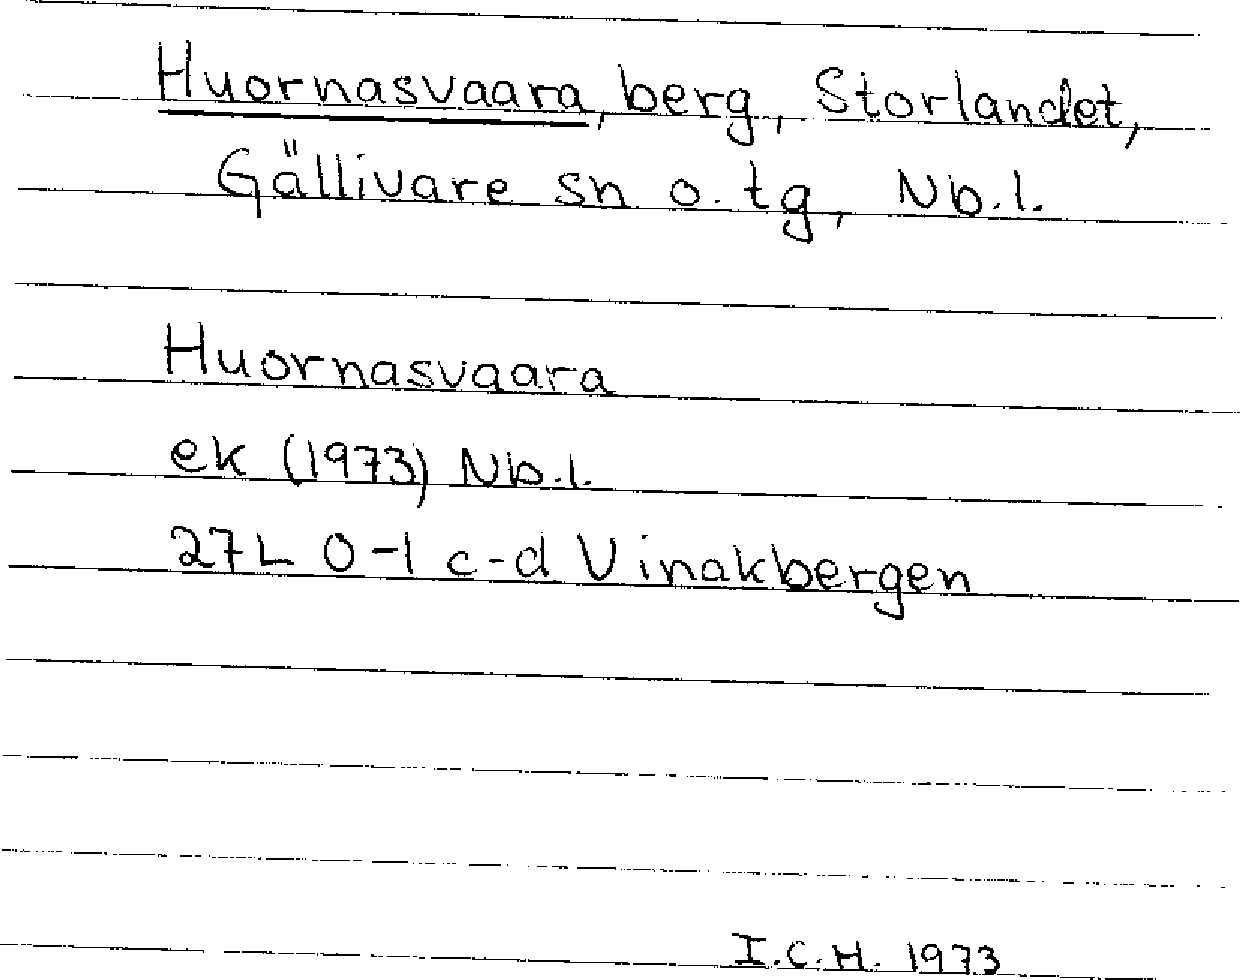 Huornasvaara, berg, Storlandet,
Gällivare sn o. tg, Nb.l.
Huornasvaara
ek (1973) Nb.l.
27L 0-1 c-d Vinakbergen
I.C.H. 1973